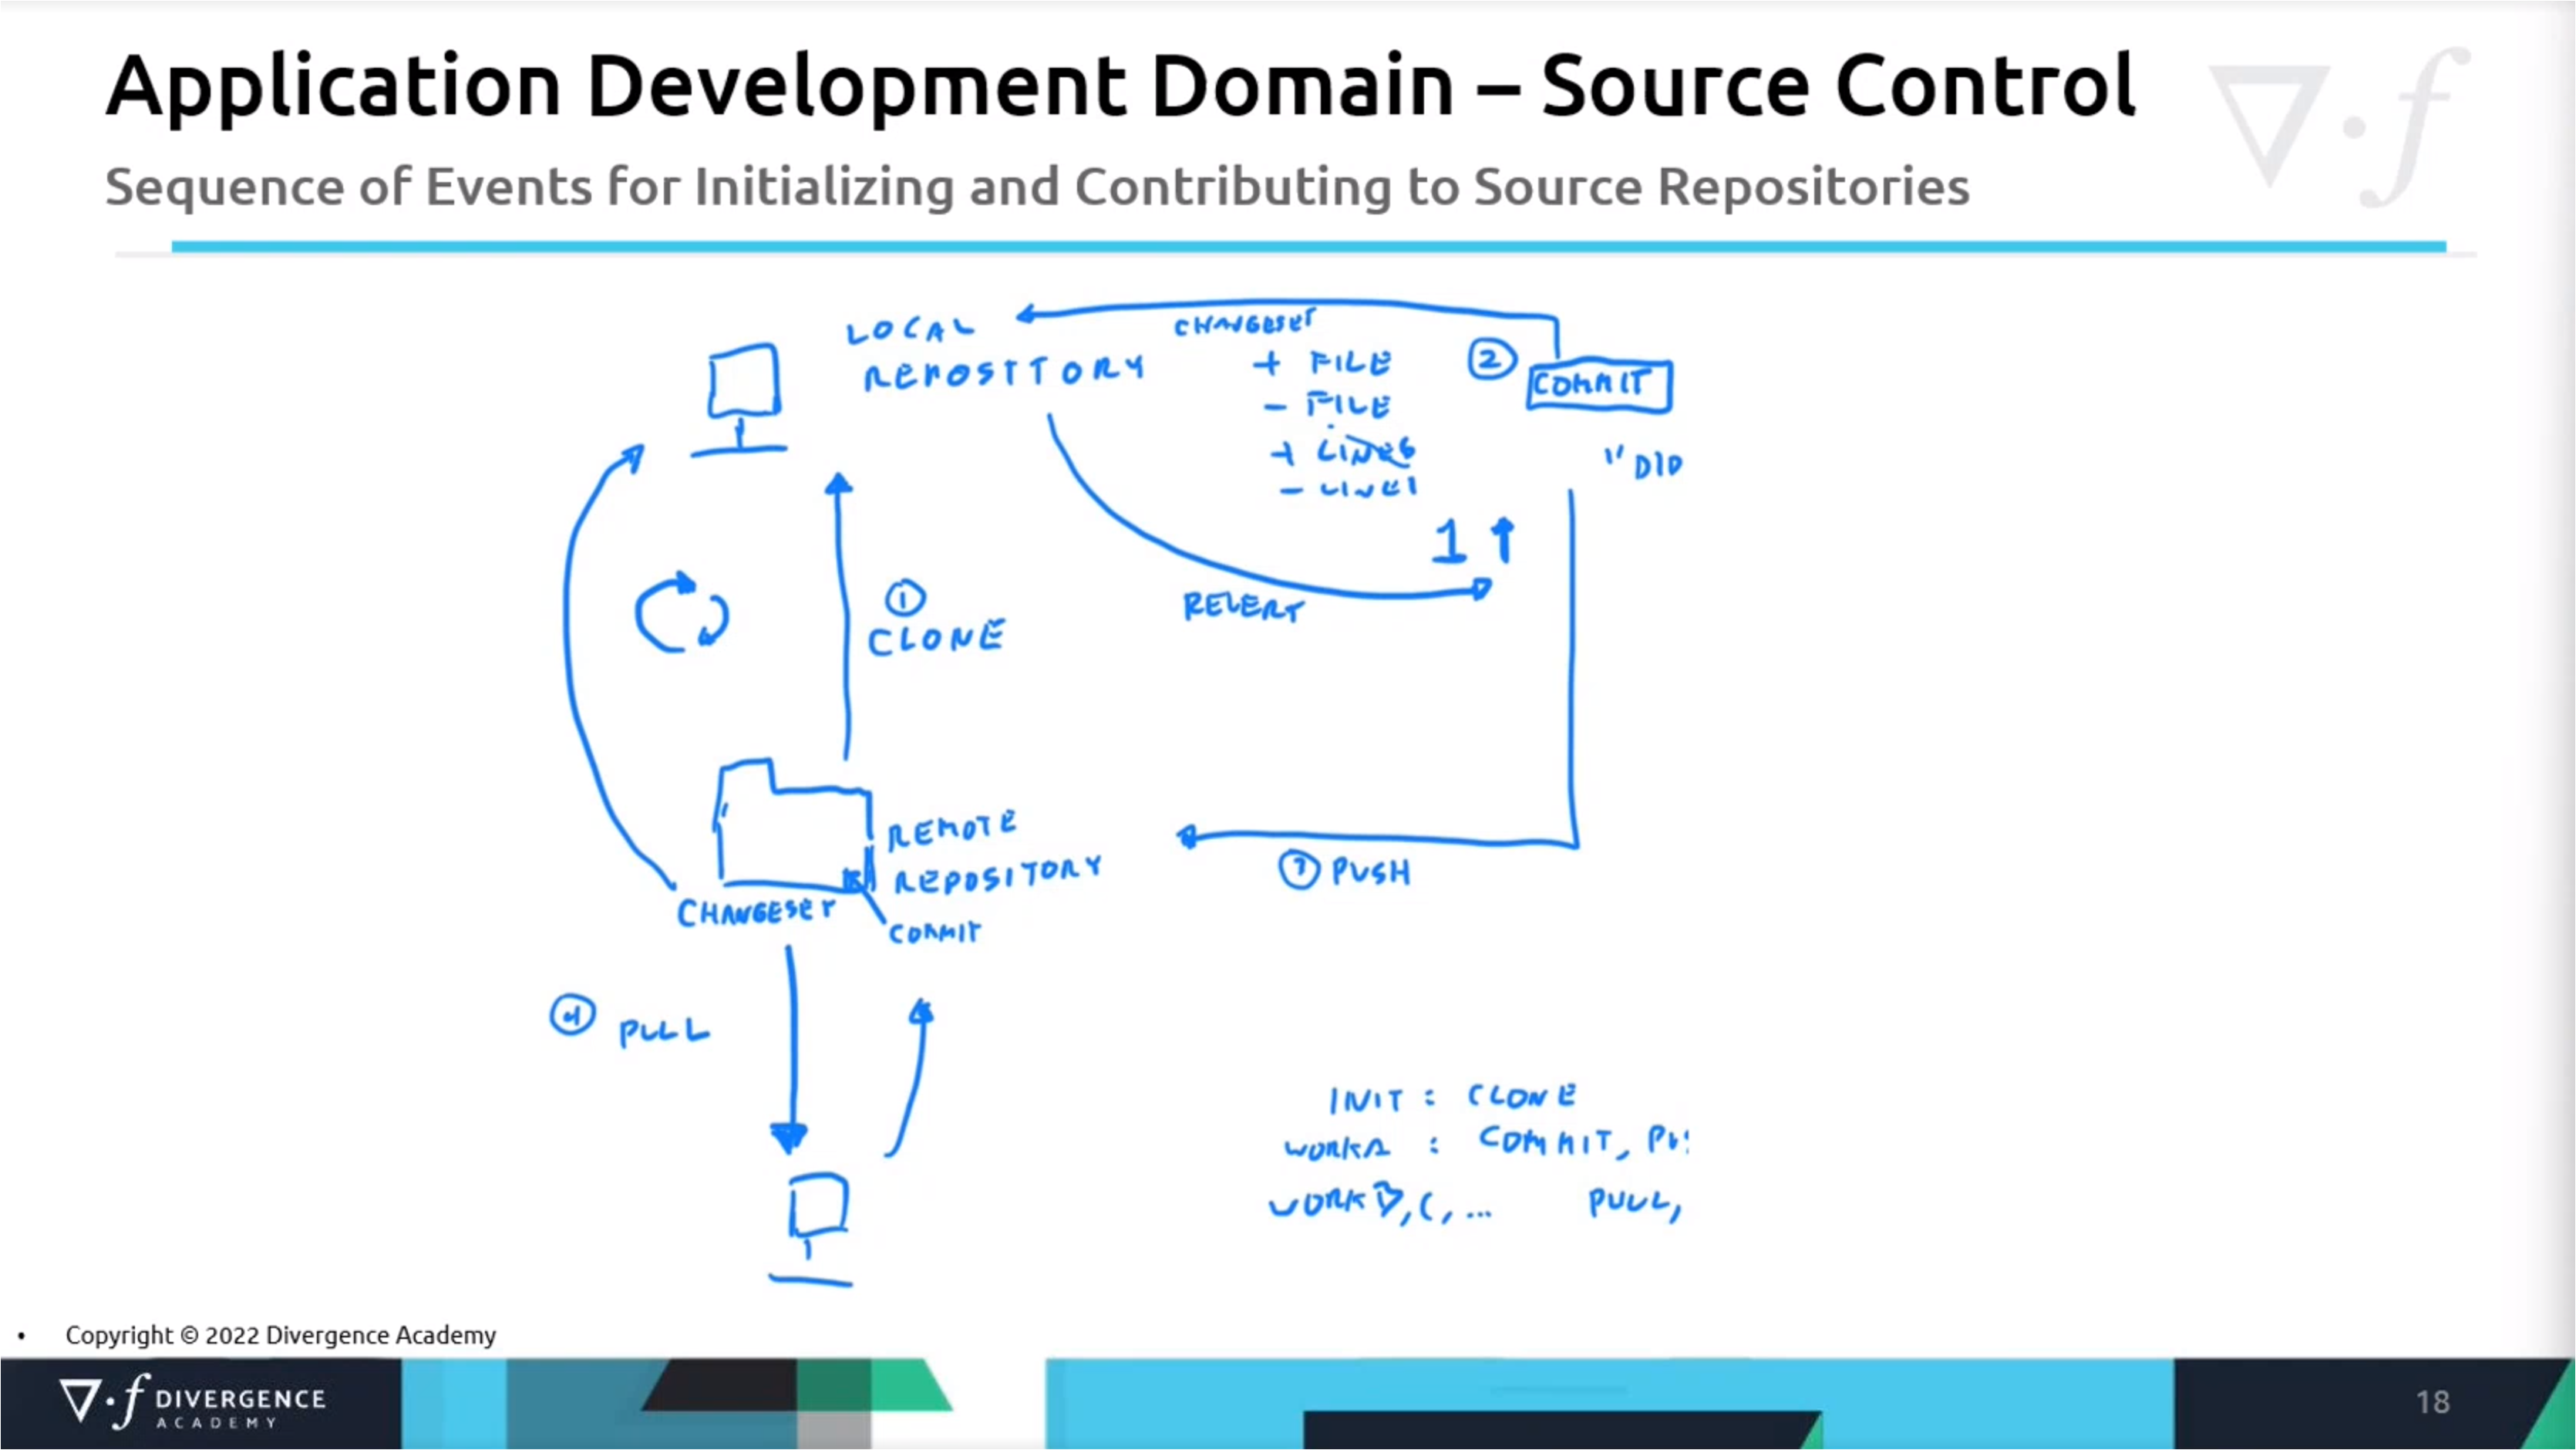 Application Development Domain – Source Control
Sequence of Events for Initializing and Contributing to Source Repositories
LOCAL
REPOSITORY
CHANGESET
+ FILE
- FILE
+ LINES
- LINES
2
COMMIT
" DID
1 ↑
REVERT
1
CLONE
REMOTE
REPOSITORY
CHANGESET
COMMIT
3 PUSH
4 PULL
INIT : CLONE
WORK A : COMMIT,
WORK B, C, ... PULL,
• Copyright © 2022 Divergence Academy
∇·f DIVERGENCE
ACADEMY
18